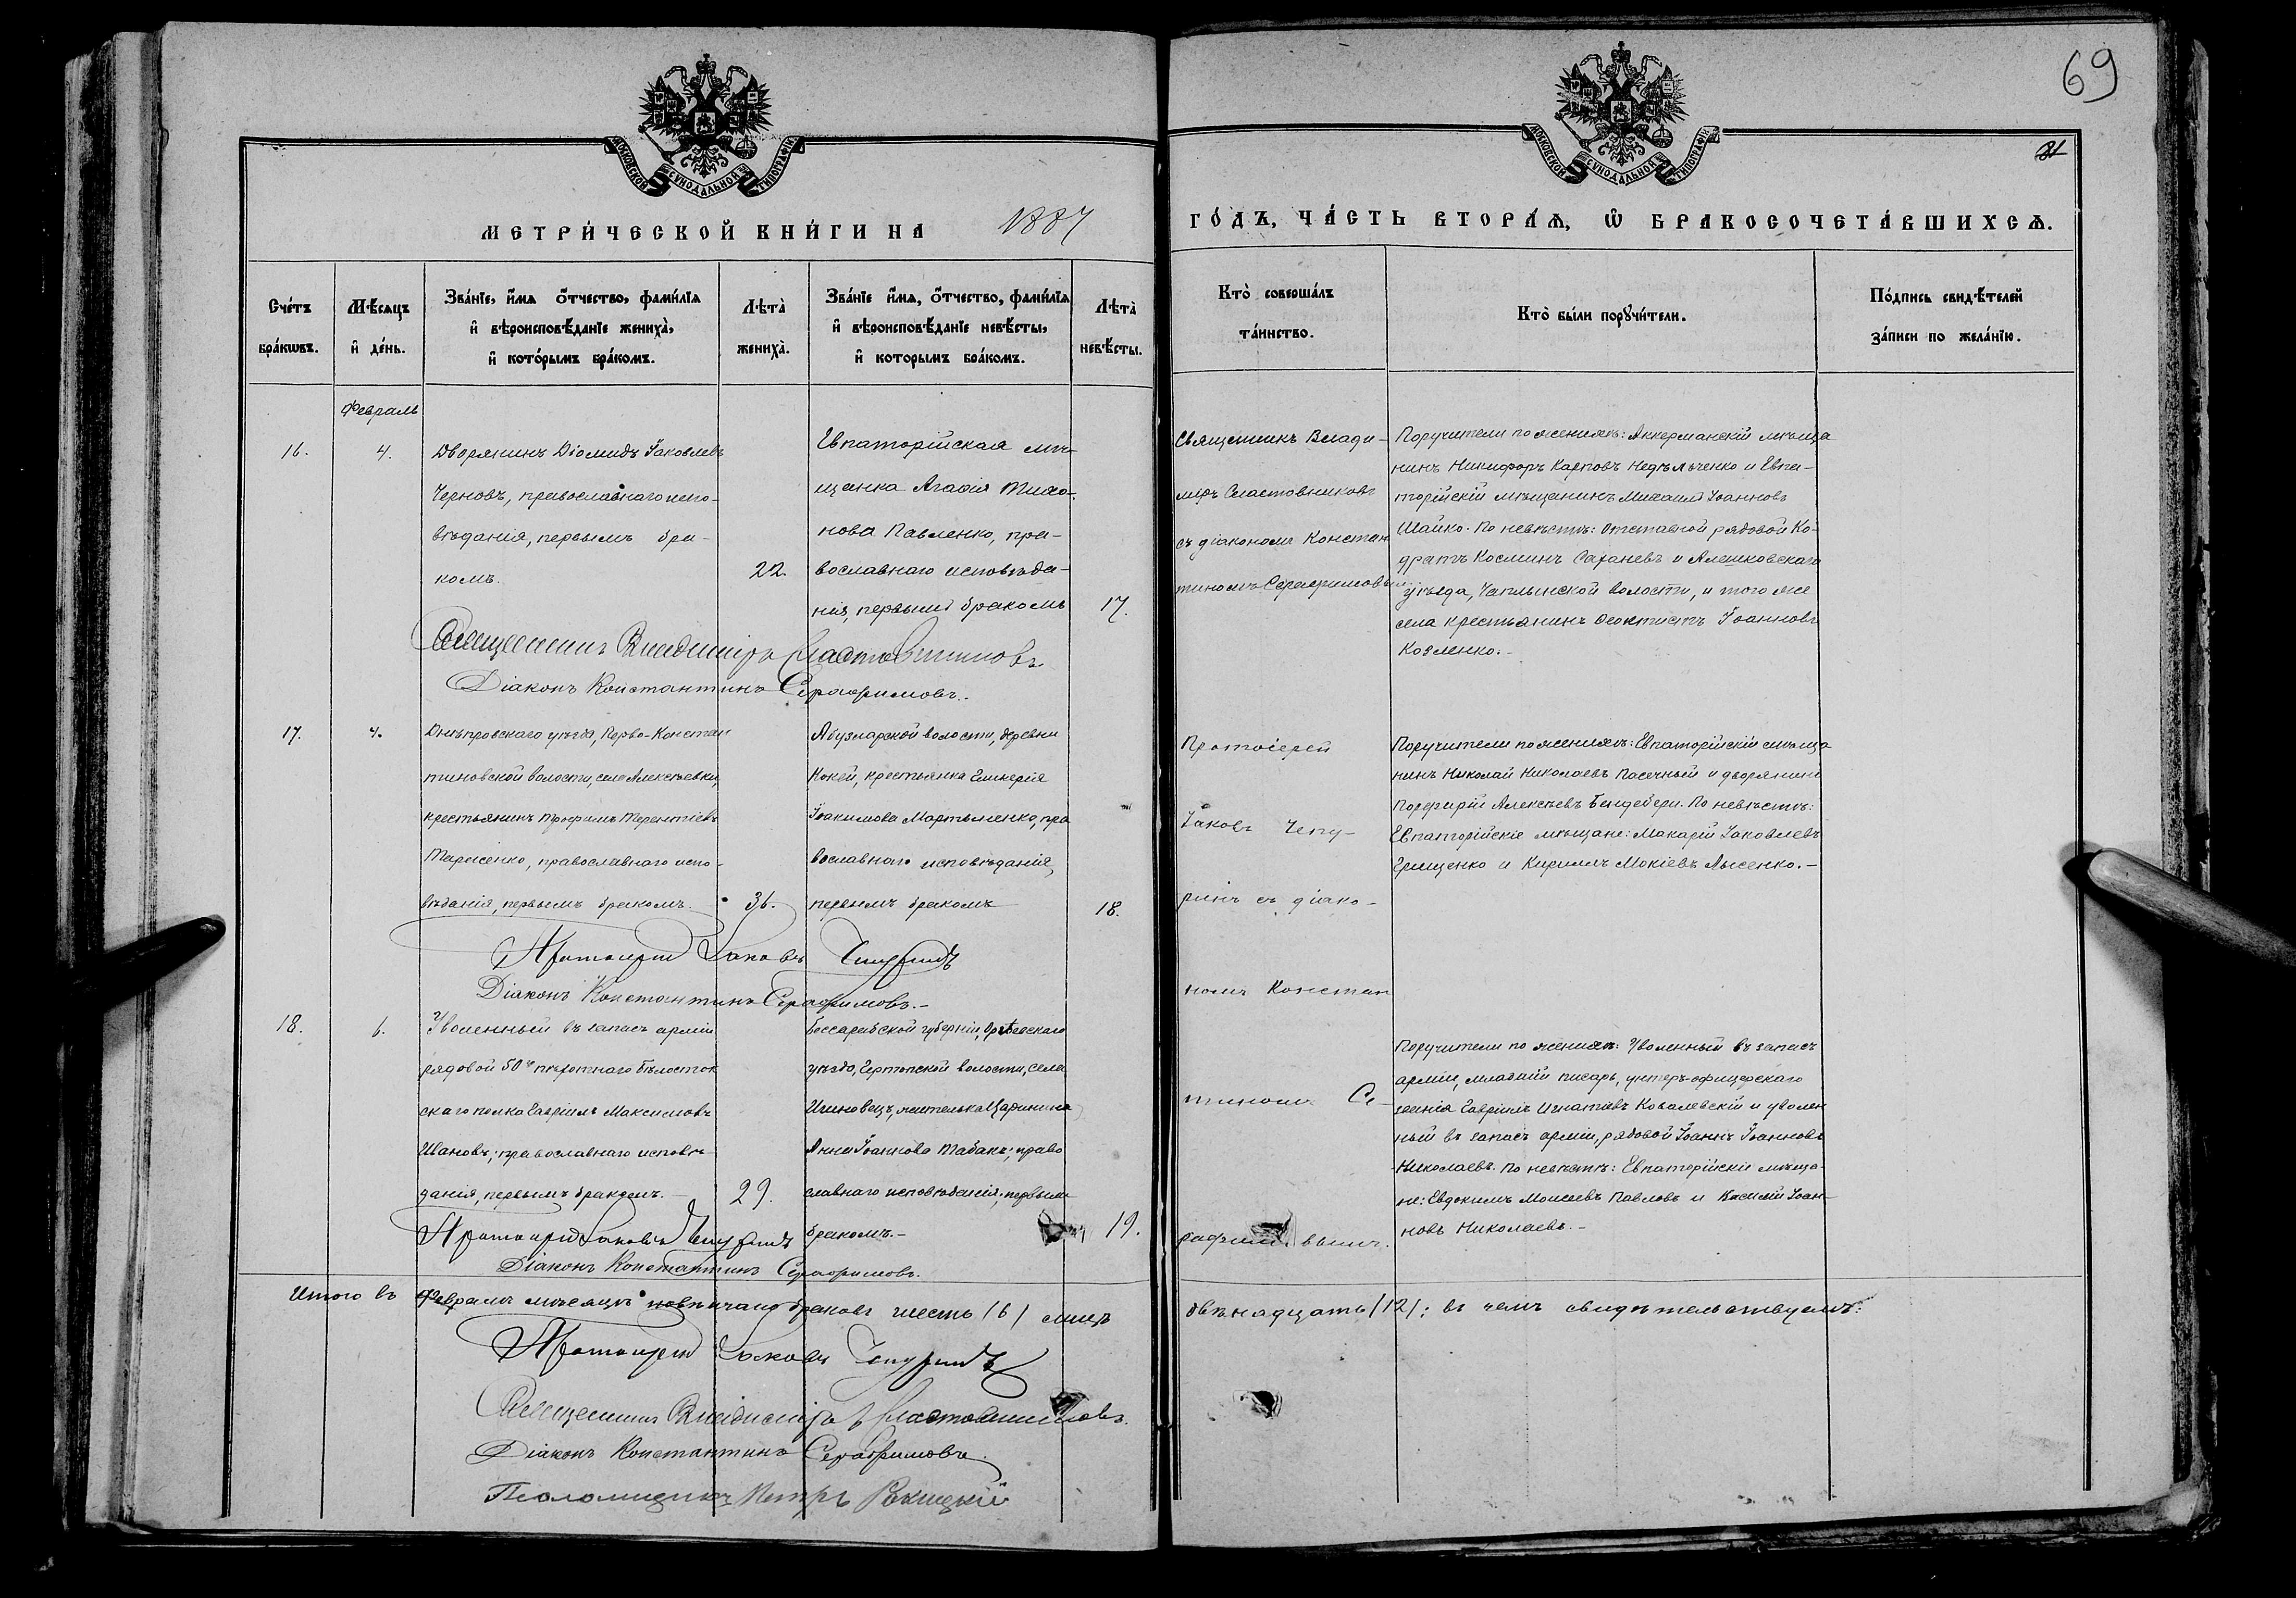 69
МОСКОВСКОЙ СѴНОДАЛЬНОЙ ТИПОГРАФІИ
МОСКОВСКОЙ СѴНОДАЛЬНОЙ ТИПОГРАФІИ
МЕТРИ́ЧЕСКОЙ КНИ́ГИ НА 1887
ГО́ДЪ, ЧА́СТЬ ВТОРА́Ѧ, Ѽ БРАКОСОЧЕТА́ВШИХСѦ.
Сче́тъ бра́кѡвъ.
Мѣ́сѧцъ и҆ де́нь.
Зва́нїе, и҆́мѧ ѻ҆́тчество, фами́лїѧ
и҆ вѣроисповѣ́данїе жениха̀,
и҆ кото́рымъ бра́комъ.
Лѣта̀ жениха̀.
Зва́нїе и҆́мѧ, ѻ҆́тчество, фами́лїѧ
и҆ вѣроисповѣ́данїе невѣ́сты,
и҆ которымъ бра́комъ.
Лѣта̀ невѣ́сты.
Кто̀ соверша́лъ
та́инство.
Кто̀ бы́ли порꙋчи́тели.
По́дпись свидѣ́телей
за́писи по жела́нїю.
Февраль
16.
4.
Дворянинъ Діомидъ Іаковлевъ
Черновъ, православнаго испо-
вѣданія, первымъ бра-
комъ.
22.
Евпаторійская мѣ-
щанка Агафія Тихо-
нова Павленко, пра-
вославнаго исповѣда-
нія, первымъ бракомъ
17.
Священникъ Влади-
міръ Сластовниковъ
съ діакономъ Констан
тиномъ Серафимовымъ
Поручители по женихѣ: Аккерманскій мѣща
нинъ Никифоръ Карповъ Недѣльченко и Евпа-
торійскій мѣщанинъ Михаилъ Іоанновъ
Шайко. По невѣстѣ: Отставной рядовой Ко-
дратъ Косминъ Сафаневъ и Алешковскаго
уѣзда, Чаплынской волости, и того же
села крестьянинъ Ѳеоктистъ Іоанновъ
Козленко.-
Священникъ Владиміръ Сластовниковъ
Діаконъ Константинъ Серафимовъ.-
17.
4.
Днѣпровскаго уѣзда, Перво-Констан
тиновской волости, села Алексѣевки,
крестьянинъ Трофимъ Терентіевъ
Тарасенко, православнаго испо-
вѣданія, первымъ бракомъ.
36.
Абузларской волости, деревни
Кокей, крестьянка Гликерія
Іоакимова Мартыненко, пра
вославнаго исповѣданія,
первымъ бракомъ
18.
Протоіерей
Іаковъ Чепу-
ринъ съ діако-
номъ Констан
тиномъ Се-
рафимовымъ.
Поручители по женихѣ: Евпаторійскій мѣща
нинъ Николай Николаевъ Пасечный и дворянинъ
Порфирій Алексѣевъ Бендебери. По невѣстѣ:
Евпаторійскіе мѣщане: Макарій Іаковлевъ
Грищенко и Кириллъ Мокіевъ Лысенко.-
Протоіерей Іаковъ Чепуринъ
Діаконъ Константинъ Серафимовъ.-
18.
6.
Уволенный въ запасъ арміи
рядовой 50го пѣхотнаго Бѣлосток
скаго полка Гавріилъ Максимовъ
Шановъ; православнаго исповѣ-
данія, первымъ бракомъ.-
29.
Бессарабской губерніи, Оргѣевскаго
уѣзда, Чертопской волости, села
Игиновецъ, жителька Царанина
Анна Іоаннова Табакъ; право
славнаго исповѣданія; первымъ
бракомъ.-
19.
Поручители по женихѣ: Уволенный въ запасъ
арміи, младшій писарь, унтеръ-офицерскаго
званія Гавріилъ Игнатіевъ Ковалевскій и уволен
ный въ запасъ арміи, рядовой Іоаннъ Іоанновъ
Николаевъ. По невѣстѣ: Евпаторійскіе мѣща-
не: Евдокимъ Моисеевъ Павловъ и Василій Іоан-
новъ Николаевъ.-
Протоіерей Іаковъ Чепуринъ
Діаконъ Константинъ Серафимовъ.
Итого въ Февралѣ мѣсяцѣ повѣнчано браковъ шесть (6) лицъ
двѣнадцать (12); въ чемъ свидѣтельствуемъ:
Протоіерей Іаковъ Чепуринъ
Священникъ Владиміръ Сластовниковъ.
Діаконъ Константинъ Серафимовъ.
Псаломщикъ Петръ